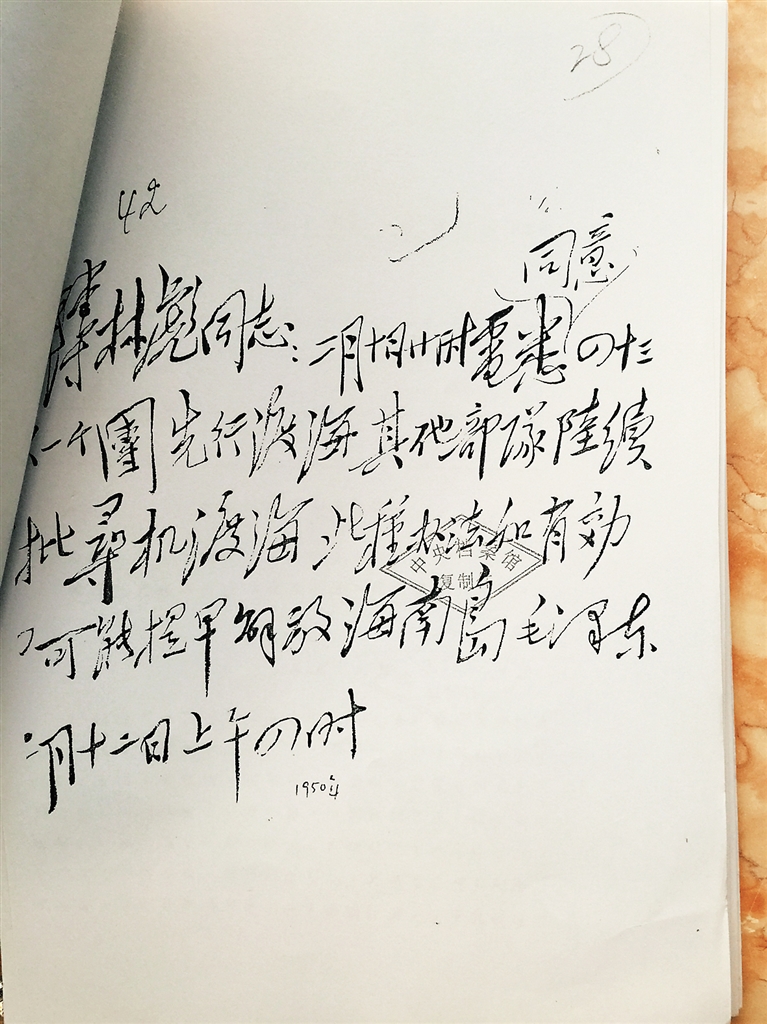 28
42
同意
林彪同志：二月十日廿时電悉四十三
一个團先行渡海其他部隊陸續
批尋机渡海此種办法如有効
可能提早解放海南島毛泽东
二月十二日上午四时
1950年
中央档案馆
复制